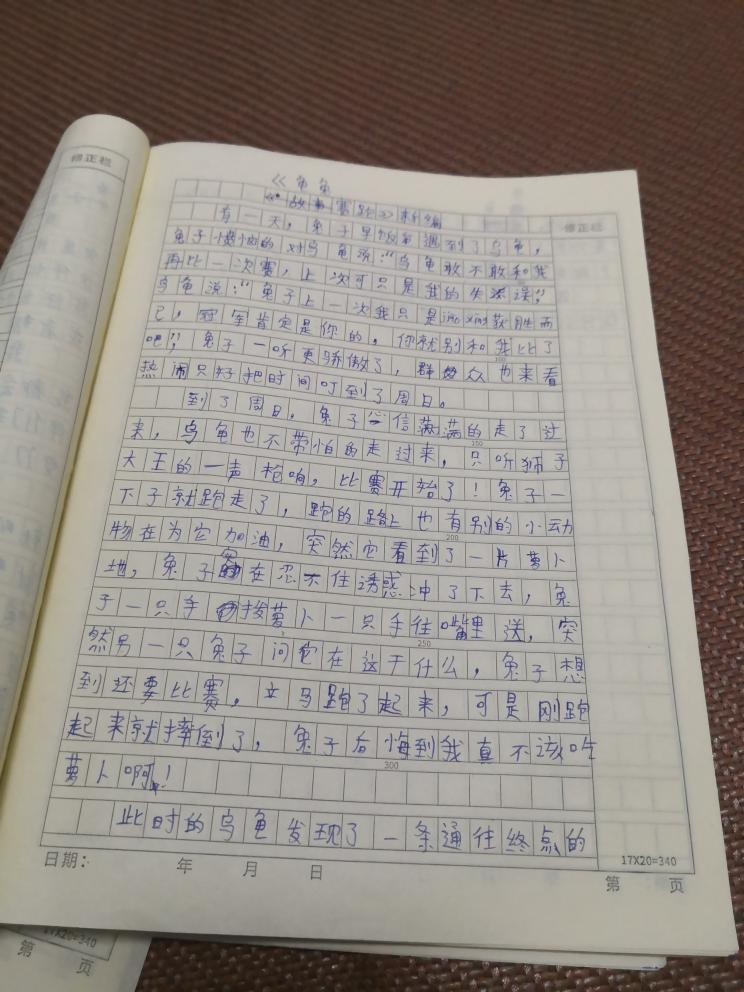 修正栏
《龟兔
赛跑》新编
修正栏
有一天，兔子早饭后遇到了乌龟，
兔子愤怕的对乌龟说：“乌龟敢不敢和我
再比一次赛，上次可只是我的失误，”
乌龟说：“兔子上一次我只是获胜而
已，冠军肯定是你的，你就别和我比了
吧”，兔子一听更骄傲了，群众也来看
热闹只好把时间叮到了周日。
到了周日，兔子信满满的走了过
来，乌龟也不带怕的走过来，只听狮子
大王的一声枪响，比赛开始了！兔子一
下子就跑走了，跑的路上也有别的小动
物在为它加油，突然它看到了一片萝卜
地，兔子实在忍不住诱惑冲了下去，兔
子一只手拨萝卜一只手往嘴里送，突
然另一只兔子问它在这干什么，兔子想
到还要比赛，立马跑了起来，可是刚跑
起来就摔倒了，兔子后悔到我真不该吃
萝卜啊！
此时的乌龟发现了一条通往终点的
100
150
200
250
300
17X20=340
日期： 年 月 日
第 页
17X20=340
第 页